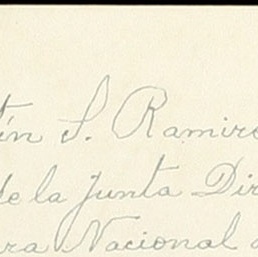 tín S. Ramire
de la Junta Dir
ra Nacional d